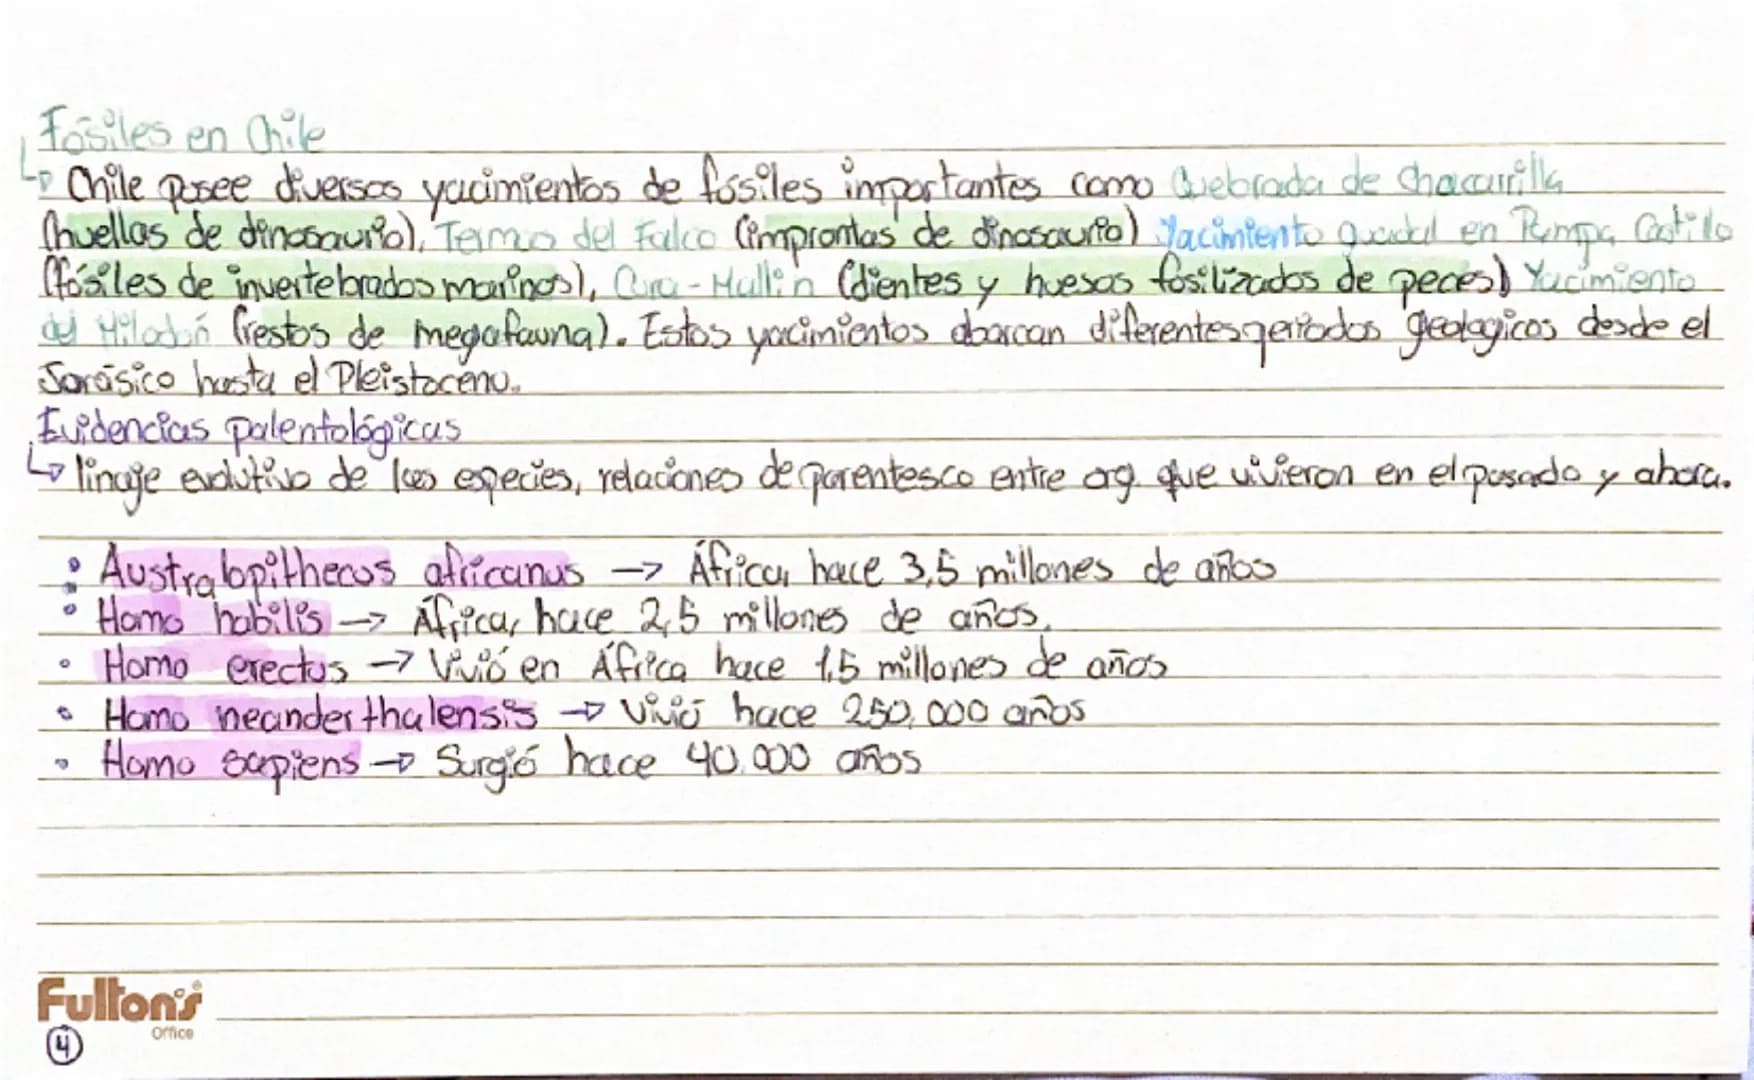 Fósiles en Chile
↳ Chile posee diversos yacimientos de fósiles importantes como Quebrada de Chacarrilla
(huellas de dinosaurio), Termas del Falco (improntas de dinosaurio) Yacimiento guadal en Pampa Castillo
(fósiles de invertebrados marinos), Cura-Mallín (dientes y huesos fosilizados de peces) Yacimiento
del Milodón (restos de megafauna). Estos yacimientos abarcan diferentes periodos geologicos desde el
Jorásico hasta el Pleistoceno.
Evidencias palentológicas
↳ linaje evolutivo de las especies, relaciones de parentesco entre org. que vivieron en el pasado y ahora.
• Australopithecus africanus → África, hace 3,5 millones de años
• Homo habilis → África, hace 2,5 millones de años.
• Homo erectus → Vivió en África hace 1,5 millones de años
• Homo neanderthalensis → Vivió hace 250.000 años
• Homo sapiens → Surgió hace 40.000 años
Fulton's
Office
4